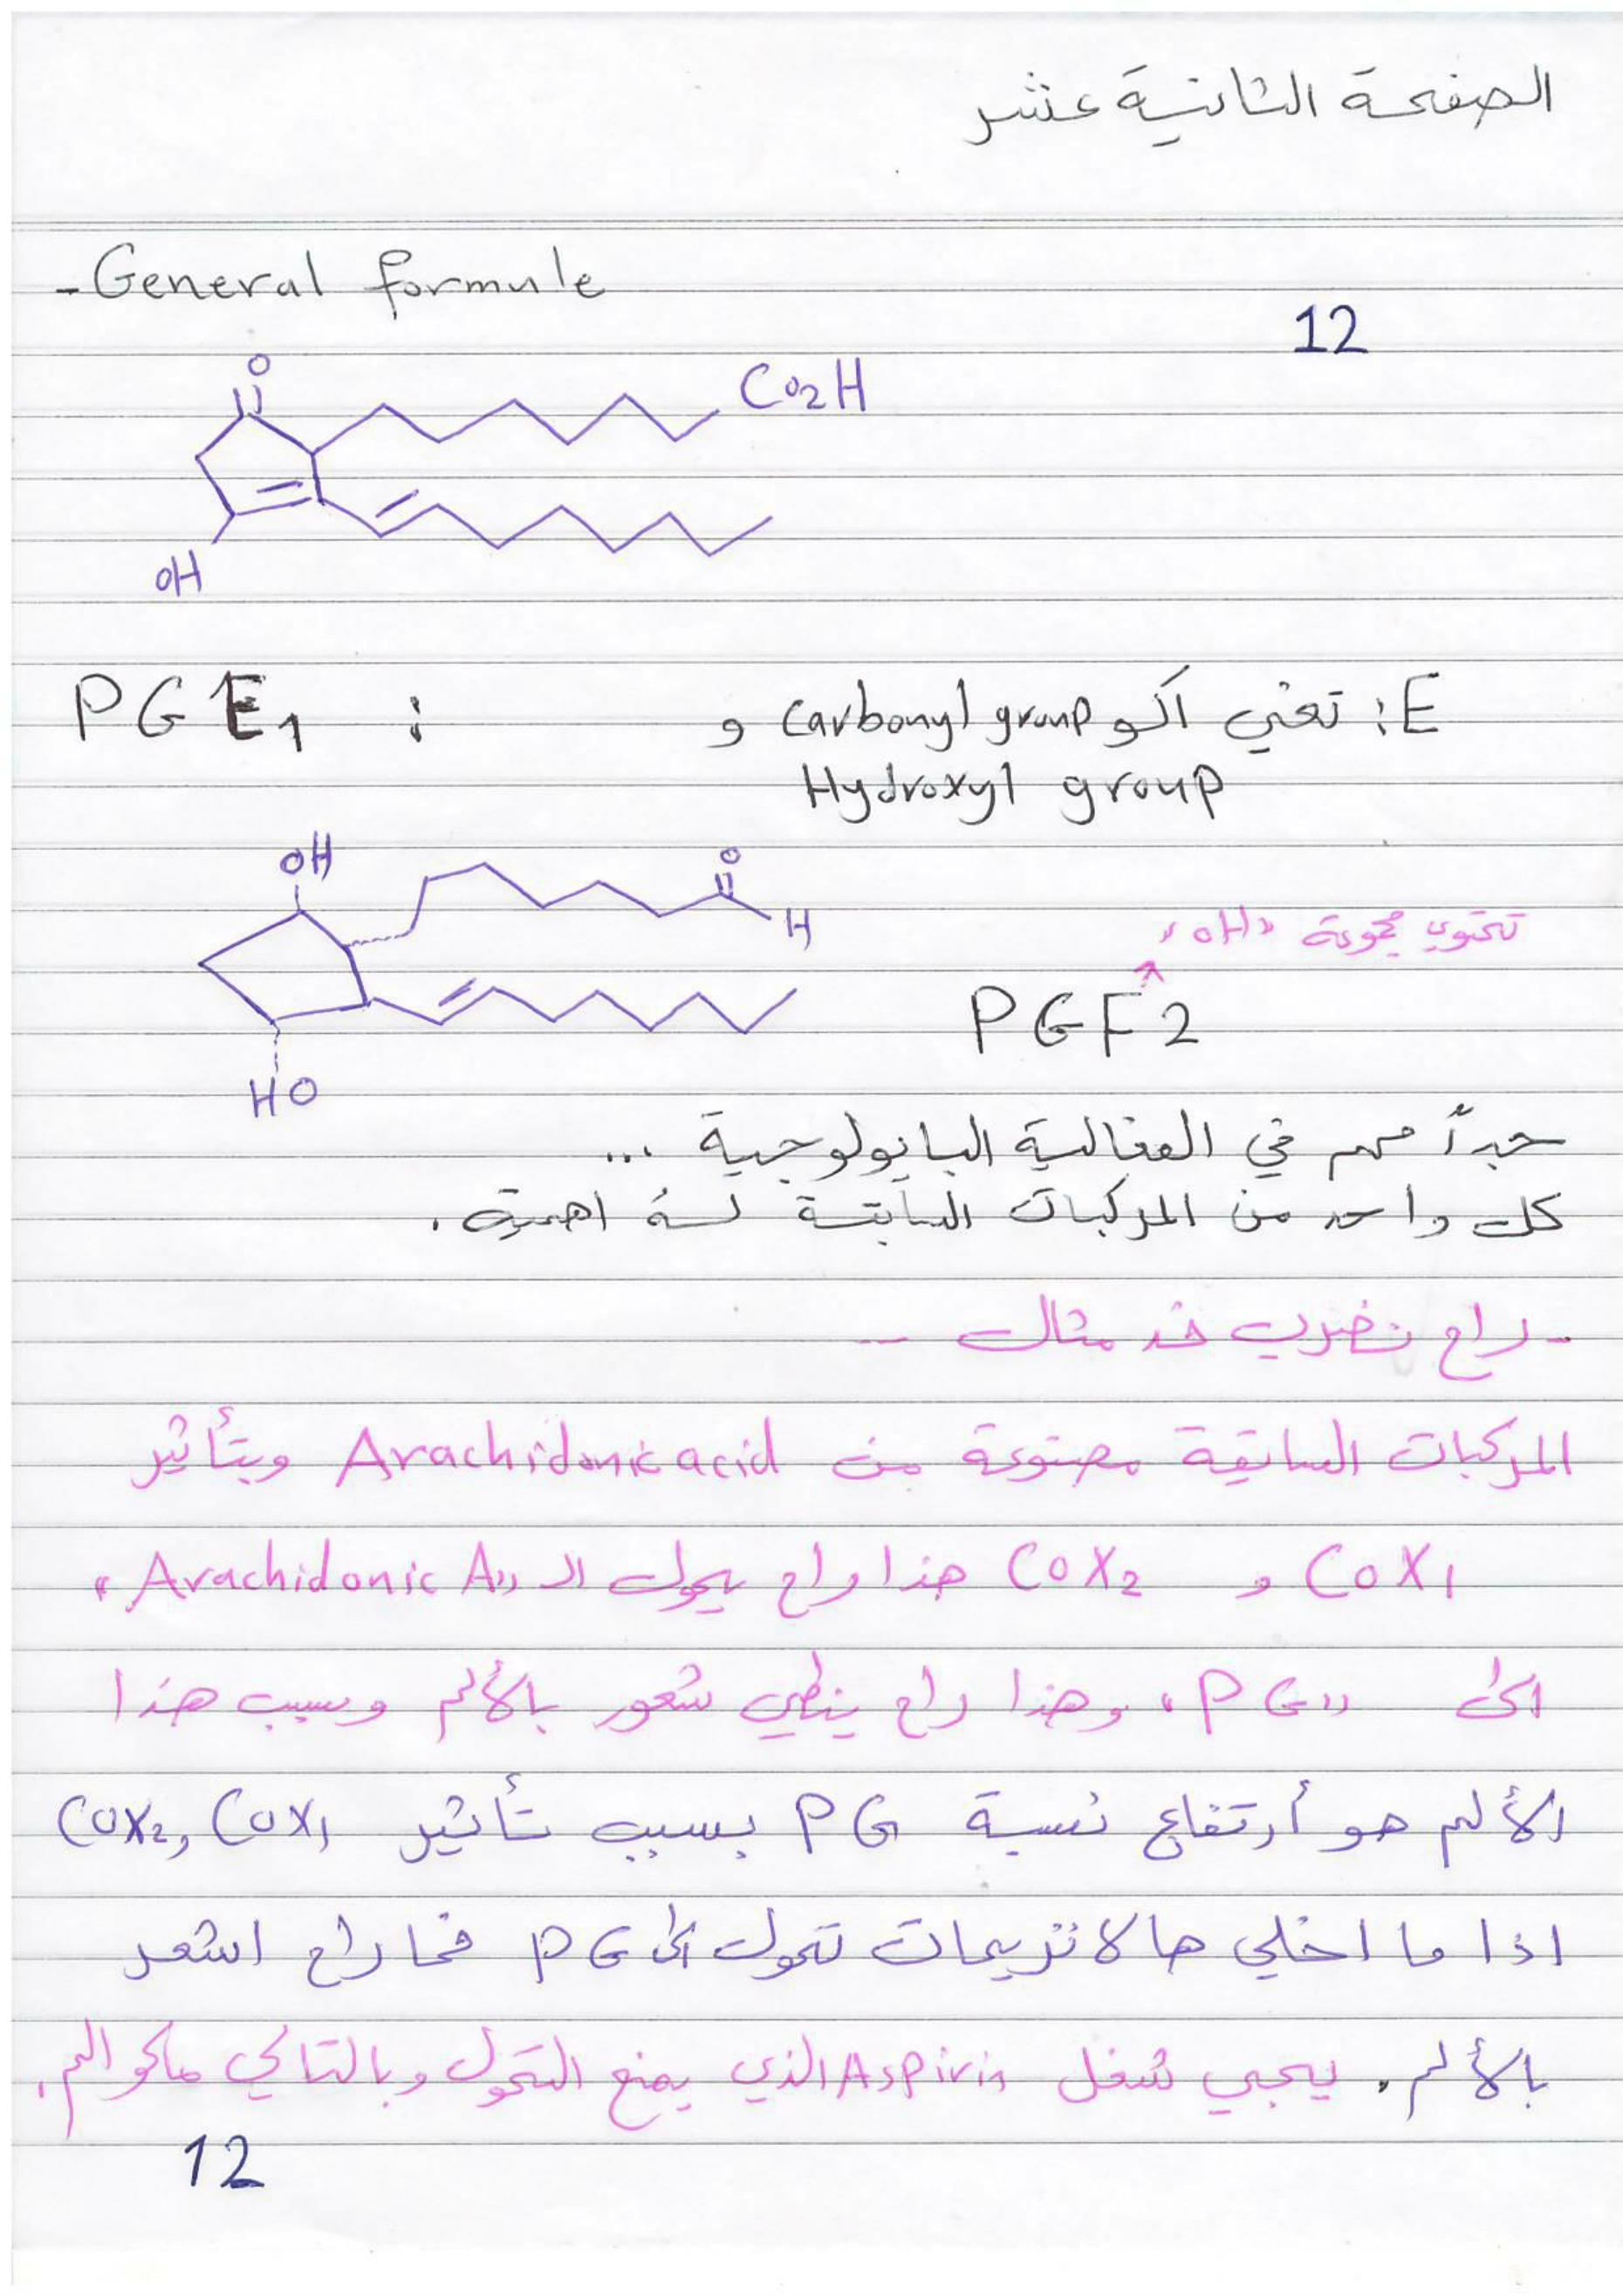 الصفحة الثانية عشر
- General formule
12
O
CO2H
OH
PGE1 :
E: تعني اكو carbonyl group و
Hydroxyl group
OH
O
H
تحتوي مجموعة "OH"
PGF2
HO
جداً مهم في الفعالية البايولوجية ...
كل واحد من المركبات السابقة له اهمية .
- راح نضرب خد مثال --
المركبات السابقة مصنوعة من Arachidonic acid وبتأثير
COX1 و COX2 هذا راح يحول الـ "Arachidonic A"
الى "PG" ، وهذا راح ينطي شعور بالألم وسبب هذا
الألم هو أرتفاع نسبة PG بسبب تأثير COX1 و COX2
اذا ما اخلي هالانزيمات تحول الى PG فما راح اشعر
بالألم . يجي شغل Aspirin الذي يمنع التحول وبالتالي ماكو الم .
12